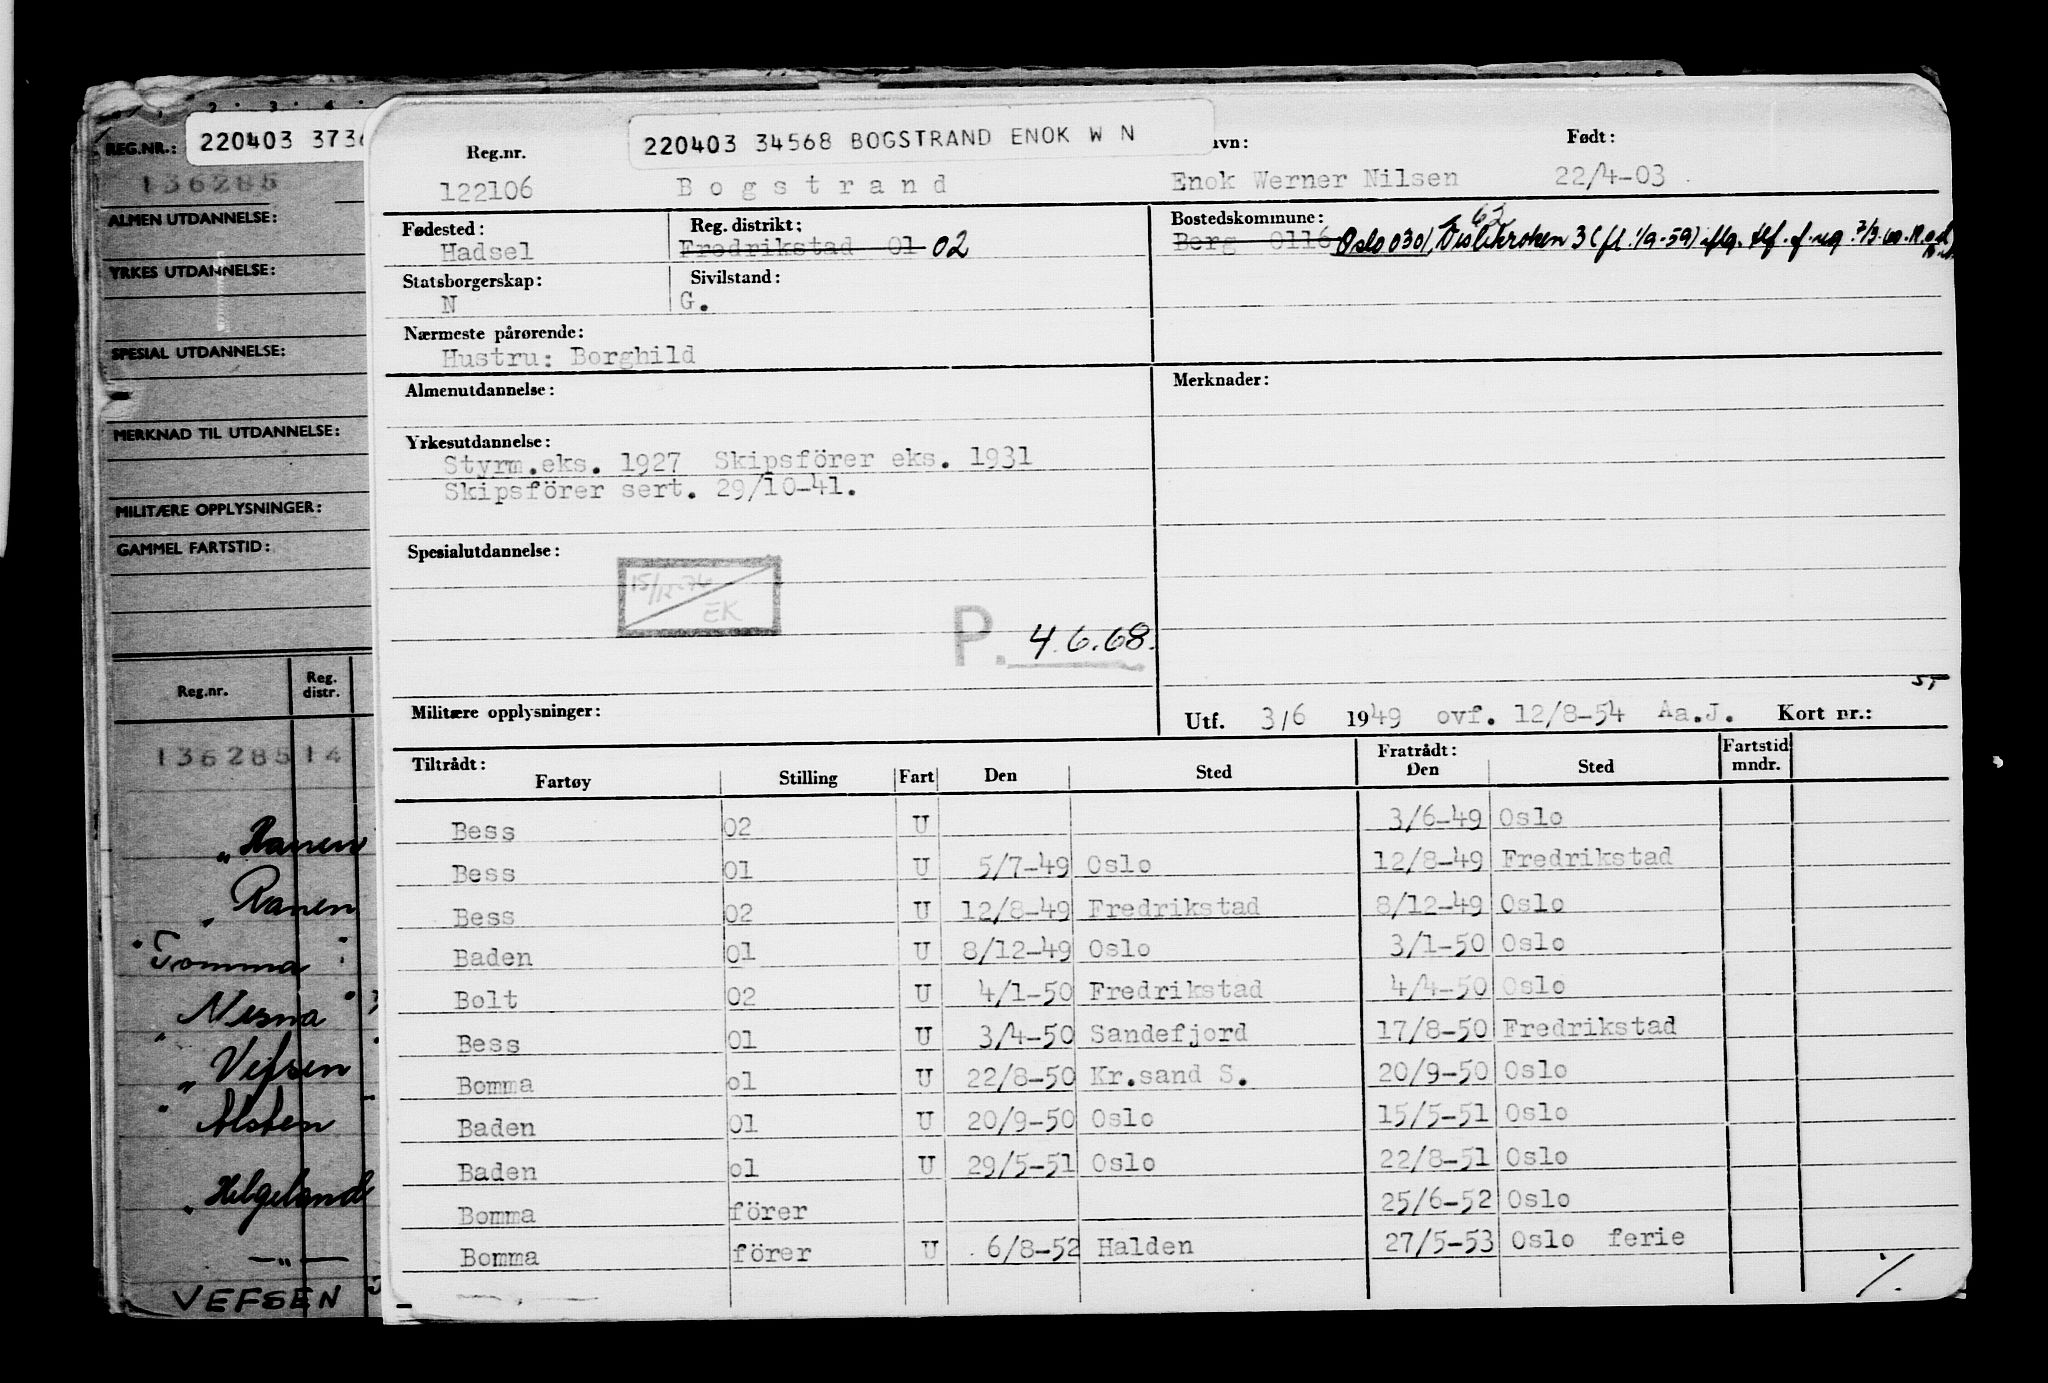 2 · 3 · 4
REG.NR.: 220403 3736
136285
ALMEN UTDANNELSE:
YRKES UTDANNELSE:
SPESIAL UTDANNELSE:
MERKNAD TIL UTDANNELSE:
MILITÆRE OPPLYSNINGER:
GAMMEL FARTSTID:
Reg.nr. Reg. distr.
136285 14
„ Ranen
„ Ranen
" Tomma
„ Nesna "
„ Vefsen
" Alsten
„ Helgeland
— „ —
VEFSEN
220403 34568 BOGSTRAND ENOK W N
Reg.nr. avn: Født:
122106 Bogstrand Enok Werner Nilsen 22/4-03
Fødested: Reg. distrikt: Bostedskommune:
Hadsel Fredrikstad 01 02 Berg 0116 Oslo 0301, 3 (fl. 1/9-59) iflg. tlf. f.
Statsborgerskap: Sivilstand:
N G.
Nærmeste pårørende:
Hustru: Borghild
Almenutdannelse: Merknader:
Yrkesutdannelse:
Styrm.eks. 1927 Skipsförer eks. 1931
Skipsförer sert. 29/10-41.
Spesialutdannelse:
15/12-76
EK
P. 4.6.68.
Militære opplysninger: Utf. 3/6 1949 ovf. 12/8-54 Aa.J. Kort nr.:
Tiltrådt: Fratrådt: Fartstid mndr.
Fartøy Stilling Fart Den Sted Den Sted
Bess 02 U 3/6-49 Oslo
Bess 01 U 5/7-49 Oslo 12/8-49 Fredrikstad
Bess 02 U 12/8-49 Fredrikstad 8/12-49 Oslo
Baden 01 U 8/12-49 Oslo 3/1-50 Oslo
Bolt 02 U 4/1-50 Fredrikstad 4/4-50 Oslo
Bess 01 U 3/4-50 Sandefjord 17/8-50 Fredrikstad
Bomma ol U 22/8-50 Kr.sand S. 20/9-50 Oslo
Baden 01 U 20/9-50 Oslo 15/5-51 Oslo
Baden ol U 29/5-51 Oslo 22/8-51 Oslo
Bomma förer 25/6-52 Oslo
Bomma förer U 6/8-52 Halden 27/5-53 Oslo ferie